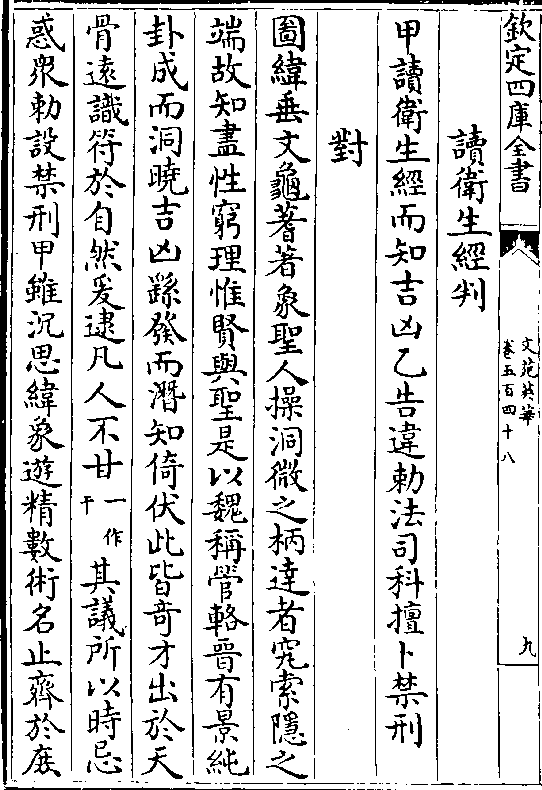 欽定四庫全書
文苑英華
卷五百四十八
九
讀衛生經判
甲讀衛生經而知吉凶乙告違勅法司科擅卜禁刑
對
圖緯垂文龜蓍著象聖人操洞微之柄達者究索隱之
端故知盡性窮理惟賢與聖是以魏稱管輅晉有景純
卦成而洞曉吉凶繇發而潛知倚伏此皆竒才出於天
骨遠識符於自然爰逮凡人不甘一作干其議所以時忌
惑衆勅設禁刑甲雖沉思緯象遊精數術名止齊於庶